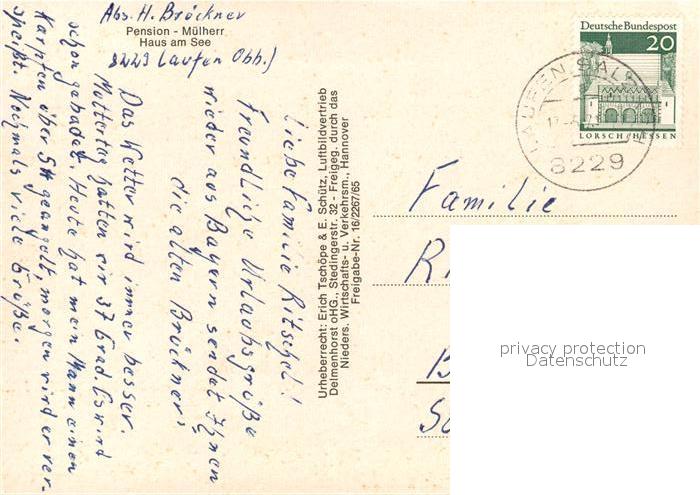 Abs. H. Bröckner
Pension - Mülherr
Haus am See
8229 Laufen Obb.)
Liebe Familie Ritschel!
Freundliche Urlaubsgrüße
wieder aus Bayern sendet Ihnen
die alten Bröckner,
Das Wetter wird immer besser.
Muttertag hatten wir 37 Grad. Es wird
schon gebadet. Heute hat mein Mann einen
Karpfen über 5 geangelt, morgen wird er ver-
speißt. Nochmals viele Grüße.
Urheberrecht: Erich Tschöpe & E. Schütz, Luftbildvertrieb
Delmenhorst oHG., Stedingerstr. 32 - Freigeg. durch das
Nieders. Wirtschafts- u. Verkehrsm., Hannover
Freigabe-Nr. 16/2267/65
Deutsche Bundespost
20
LORSCH/HESSEN
LAUFEN, SALZACH
8229
Familie
privacy protection
Datenschutz